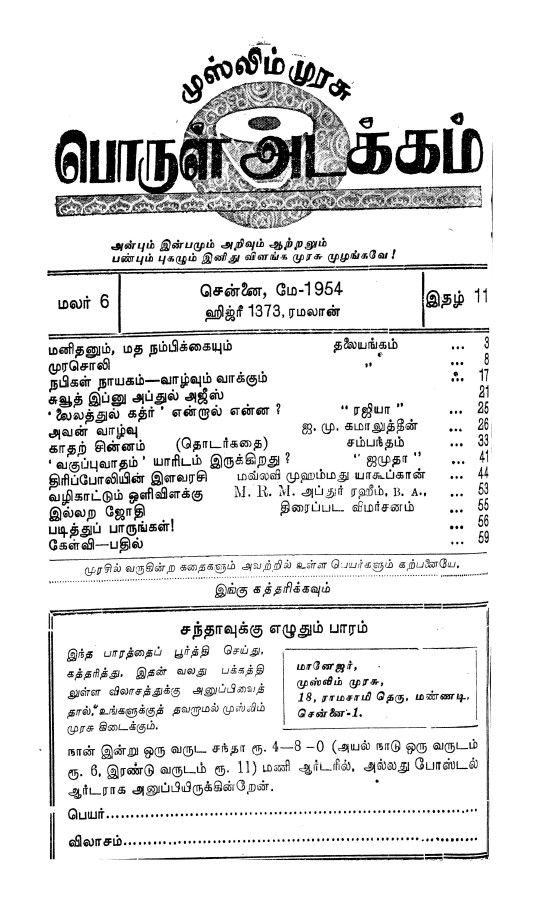 முஸ்லிம் முரசு
பொருள் அடக்கம்
அன்பும் இன்பமும் அறிவும் ஆற்றலும்
பண்பும் புகழும் இனிது விளங்க முரசு முழங்கவே!
மலர் 6
சென்னை, மே-1954
ஹிஜ்ரீ 1373, ரமலான்
இதழ் 11
மனிதனும், மத நம்பிக்கையும் தலையங்கம் ... 3
முரசொலி " ... 8
நபிகள் நாயகம்—வாழ்வும் வாக்கும் ... 17
சுவூத் இப்னு அப்துல் அஜீஸ் 21
'லைலத்துல் கத்ர்' என்றால் என்ன? "ரஜியா" ... 25
அவன் வாழ்வு ஐ. மு. கமாலுத்தீன் ... 26
காதற் சின்னம் (தொடர்கதை) சம்பந்தம் ... 33
'வகுப்புவாதம்' யாரிடம் இருக்கிறது? "ஐமுதா" ... 41
திரிப்போலியின் இளவரசி மவ்லவி முஹம்மது யாகூப்கான் ... 44
வழிகாட்டும் ஒளிவிளக்கு M. R. M. அப்துர் ரஹீம், B. A., ... 53
இல்லற ஜோதி திரைப்பட விமர்சனம் ... 55
படித்துப் பாருங்கள்! ... 56
கேள்வி—பதில் ... 59
முரசில் வருகின்ற கதைகளும் அவற்றில் உள்ள பெயர்களும் கற்பனையே.
இங்கு கத்தரிக்கவும்
சந்தாவுக்கு எழுதும் பாரம்
இந்த பாரத்தைப் பூர்த்தி செய்து,
கத்தரித்து, இதன் வலது பக்கத்தி
லுள்ள விலாசத்துக்கு அனுப்பிவைத்
தால், உங்களுக்குத் தவறாமல் முஸ்லிம்
முரசு கிடைக்கும்.
மானேஜர்,
முஸ்லிம் முரசு,
18, ராமசாமி தெரு, மண்ணடி,
சென்னை-1.
நான் இன்று ஒரு வருட சந்தா ரூ. 4—8-0 (அயல் நாடு ஒரு வருடம்
ரூ. 6, இரண்டு வருடம் ரூ. 11) மணி ஆர்டரில், அல்லது போஸ்டல்
ஆர்டராக அனுப்பியிருக்கின்றேன்.
பெயர்
விலாசம்